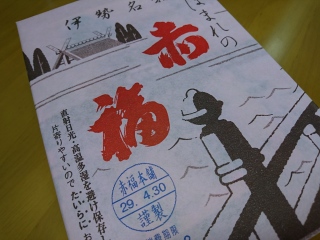 伊勢名
ほまれの
赤福
直射日光・高温多湿を避け保存
片寄りやすいので たいらにお
赤福本舗
29.4.30
謹製